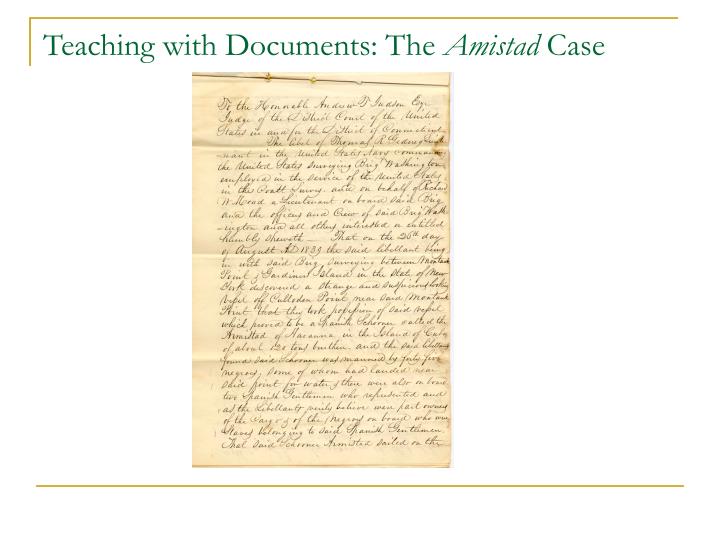 Teaching with Documents: The Amistad Case
To the Honorable Andrew T Judson Esqr
Judge of the District Court of the United
States in and for the District of Connecticut
The libel of Thomas R Gedney
-nant in the United States Navy commanding
the United States Surveying Brig Washington
employed in the service of the United States
in the Coast Survey. and on behalf of Richard
W Mead a Lieutenant on board said Brig
and the officers and Crew of said Brig Wash
-ington and all others interested or entitled
humbly sheweth — That on the 26th day
of August AD 1839 the said libellant being
in with said Brig, surveying between Montauk
Point & Gardiners Island in the State of New
York discovered a strange and suspicious looking
vessel off Culloden Point near said Montauk
Point that they took possession of said vessel
which proved to be a Spanish Schooner called the
Armistad of Havanna in the Island of Cuba
of about 120 tons burthen and the said libellants
found said Schooner was manned by forty five
negroes, some of whom had landed near
said point for water, & there were also on board
two Spanish Gentlemen who represented and
as the libellants verily believe were part owners
of the Cargo & of the Negroes on board who were
Slaves belonging to said Spanish Gentlemen
That said Schooner Armistad sailed on the